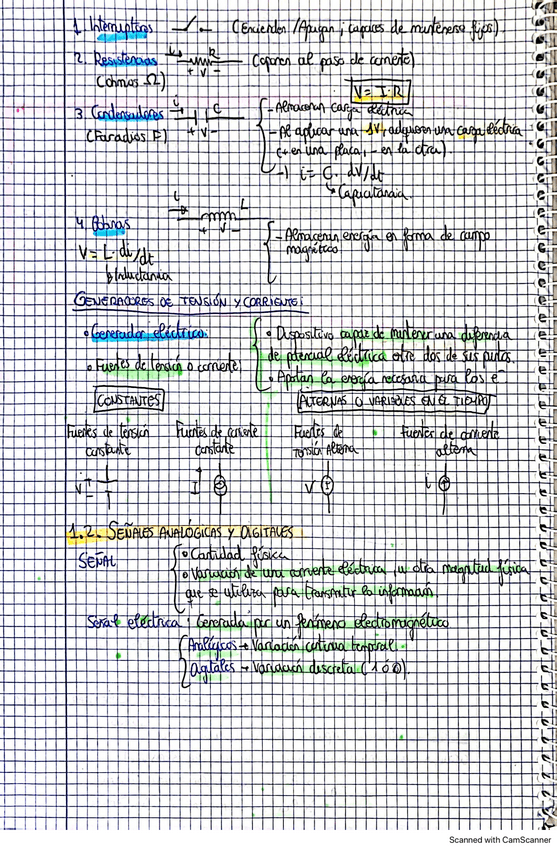 1. Interruptores (Encienden / Apagan ; capaces de mantenerse fijos).
2. Resistencias i R + V - (oponen al paso de corriente)
(ohmios Ω)
V = I·R
3. Condensadores i C + V -
(Faradios F)
- Almacenan carga eléctrica
- Al aplicar una ΔV, adquieren una carga eléctrica
(+ en una placa, - en la otra).
i = C · dV/dt
Capacitancia.
4. Bobinas i L + V -
V = L · di/dt
Inductancia
- Almacenan energía en forma de campo
magnético
GENERADORES DE TENSIÓN Y CORRIENTE:
• Generador eléctrico:
• Dispositivo capaz de mantener una diferencia
de potencial eléctrica entre dos de sus puntos.
• Fuentes de tensión o corriente
• Aportan la energía necesaria para los e⁻
CONSTANTES
ALTERNAS O VARIABLES EN EL TIEMPO
Fuentes de tensión
constante
Fuentes de corriente
constante
Fuentes de
tensión Alterna
Fuentes de corriente
alterna
V + -
I
V
i
1.2. SEÑALES ANALÓGICAS Y DIGITALES
SEÑAL
• Cantidad física
• Variación de una corriente eléctrica, u otra magnitud física
que se utiliza para transmitir la información.
Señal eléctrica : Generada por un fenómeno electromagnético
Analógicos → Variación continua temporal.
Digitales → Variación discreta (1 ó 0).
Scanned with CamScanner